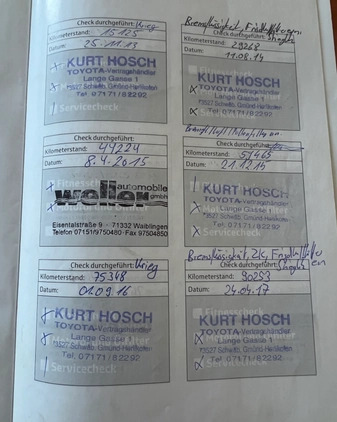 Check durchgeführt: Krieg
Kilometerstand: 15125
Datum: 25.11.13
KURT HOSCH
TOYOTA-Vertragshändler
Lange Gasse 1
73527 Schwäb. Gmünd-Herlikofen
Tel. 07171/82292
Servicecheck
Bremsflüssigkeit,
Check durchgeführt:
Kilometerstand: 29268
Datum: 11.08.14
KURT HOSCH
TOYOTA-Vertragshändler
Lange Gasse 1
73527 Schwäb. Gmünd-Herlikofen
Tel. 07171/82292
Servicecheck
Check durchgeführt:
Kilometerstand: 44224
Datum: 8.4.2015
weller automobile
gmbh
Eisentalstraße 9 · 71332 Waiblingen
Telefon 07151/9750480 · Fax 97504850
Check durchgeführt:
Kilometerstand:
Datum: 21.12.15
KURT HOSCH
TOYOTA-Vertragshändler
Lange Gasse 1
73527 Schwäb. Gmünd-Herlikofen
Tel. 07171/82292
Servicecheck
Check durchgeführt: Krieg
Kilometerstand: 75348
Datum: 01.09.16
KURT HOSCH
TOYOTA-Vertragshändler
Lange Gasse 1
73527 Schwäb. Gmünd-Herlikofen
Tel. 07171/82292
Servicecheck
Bremsflüssigkeit, ZK,
Check durchgeführt:
Kilometerstand: 90253
Datum: 24.04.17
KURT HOSCH
TOYOTA-Vertragshändler
Lange Gasse 1
73527 Schwäb. Gmünd-Herlikofen
Tel. 07171/82292
Servicecheck